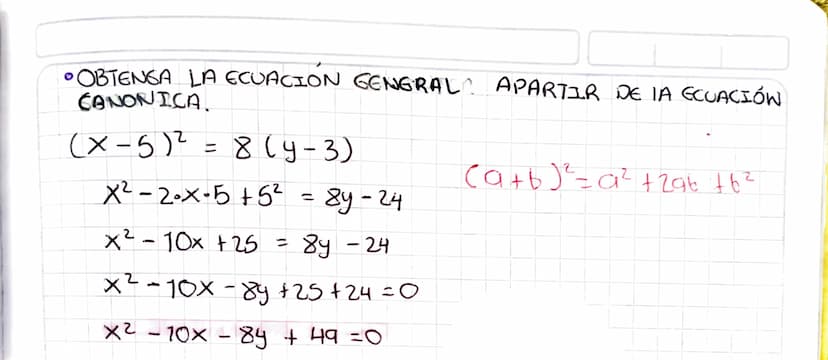 • OBTENGA LA ECUACIÓN GENERAL: APARTIR DE LA ECUACIÓN
CANONICA.
(x-5)² = 8(y-3)
(a+b)² = a² + 2ab + b²
x² - 2·x·5 + 5² = 8y - 24
x² - 10x + 25 = 8y - 24
x² - 10x - 8y + 25 + 24 = 0
x² - 10x - 8y + 49 = 0